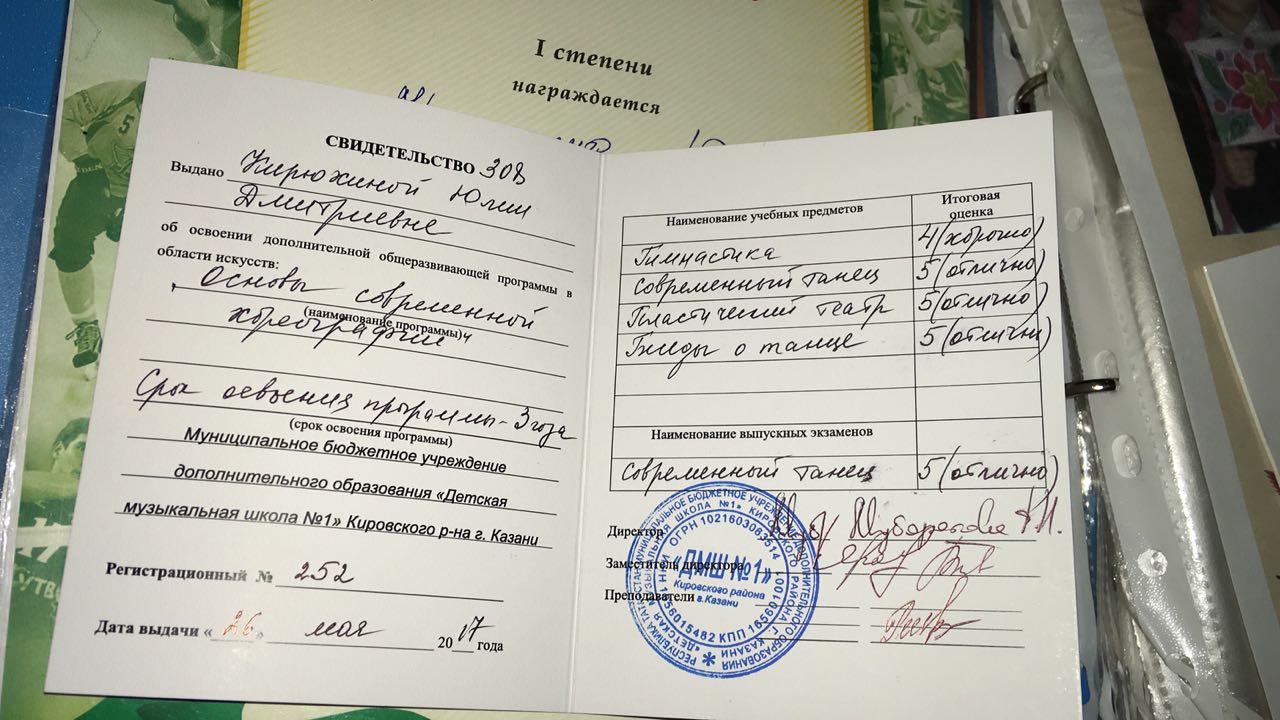 I степени
награждается
СВИДЕТЕЛЬСТВО 308
Выдано Кирюхиной Юлии
Дмитриевне
об освоении дополнительной общеразвивающей программы в
области искусств:
Основы современной
(наименование программы)
хореографии
Срок освоения программы - 3 года
(срок освоения программы)
Муниципальное бюджетное учреждение
дополнительного образования «Детская
музыкальная школа №1» Кировского р-на г. Казани
Регистрационный № 252
Дата выдачи « 26 » мая 2017 года
Наименование учебных предметов Итоговая оценка
Гимнастика 4 (хорошо)
Современный танец 5 (отлично)
Пластический театр 5 (отлично)
Беседы о танце 5 (отлично)
Наименование выпускных экзаменов
Современный танец 5 (отлично)
Директор
Заместитель директора
Преподаватели
«ДМШ №1»
Кировского района
г.Казани